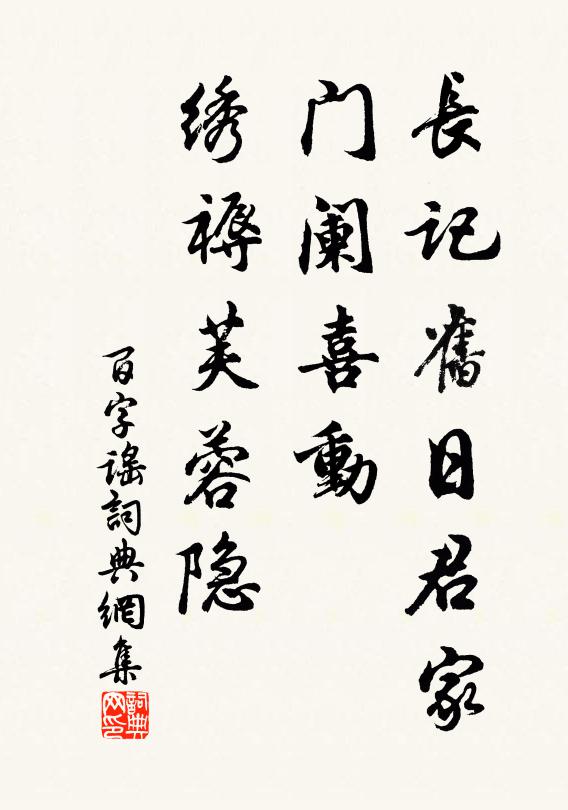 長记舊日君家
门阑喜動
绣褥芙蓉隐
百字谣詞典網集
詞典网印